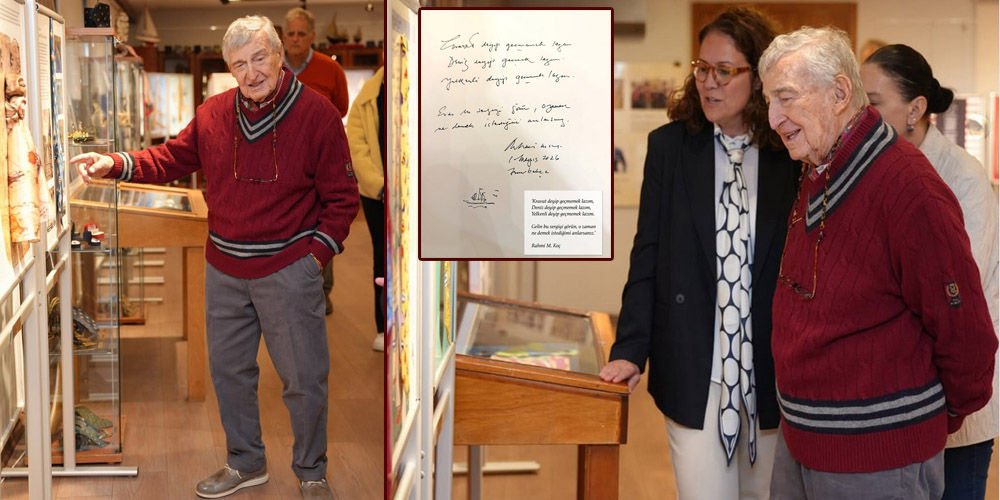 Kravat deyip geçmemek lazım
Deniz deyip geçmemek lazım.
Yelkenli deyip geçmemek lazım.
Gelin bu sergiyi görün, o zaman
ne demek istediğimi anlarsınız.
Rahmi M. Koç
1 Mayıs 2026
Fenerbahçe
'Kravat deyip geçmemek lazım,
Deniz deyip geçmemek lazım,
Yelkenli deyip geçmemek lazım.
Gelin bu sergiyi görün, o zaman
ne demek istediğimi anlarsınız.'
Rahmi M. Koç